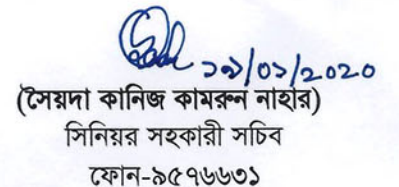 ১৯/০১/২০২০
(সৈয়দা কানিজ কামরুন নাহার)
সিনিয়র সহকারী সচিব
ফোন-৯৫৭৬৬৩১